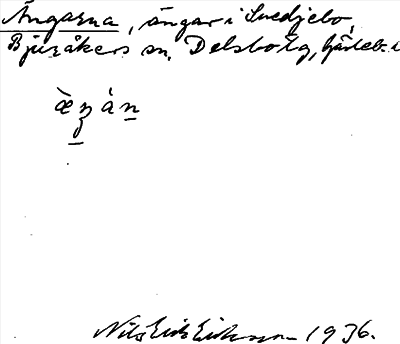 Ängarna, ängar i Svedjebo,
Bjuråkers sn, Delsbo tg, Gävleb. l
Nils Erik Eriksson 1936.